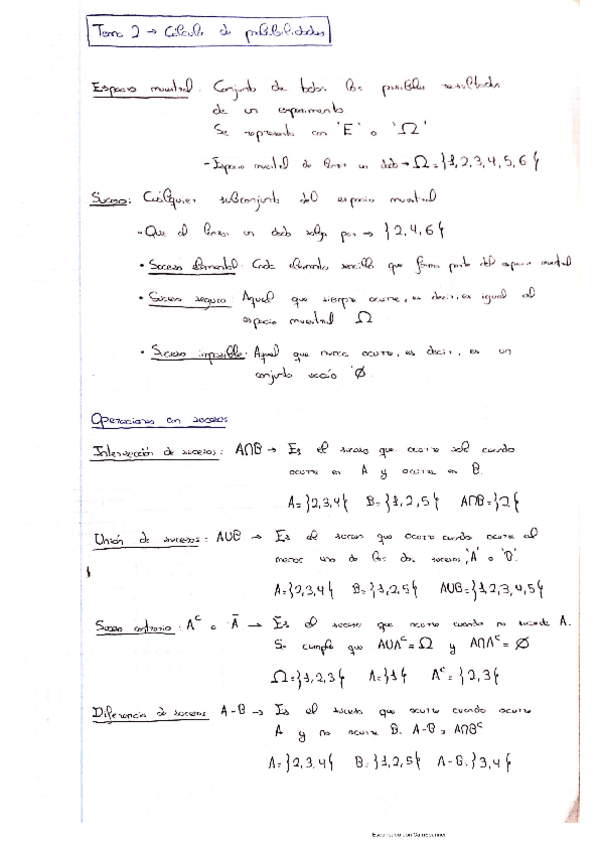 Tema 2 → Cálculo de probabilidades
Espacio muestral: Conjunto de todos los posibles resultados
de un experimento
Se representa con 'E' o 'Ω'
- Espacio muestral de lanzar un dado → Ω = {1, 2, 3, 4, 5, 6}
Suceso: Cualquier subconjunto del espacio muestral
- Que al lanzar un dado salga par → {2, 4, 6}
• Suceso elemental: Cada elemento sencillo que forma parte del espacio muestral
• Suceso seguro: Aquel que siempre ocurre, es decir, es igual al
espacio muestral Ω
• Suceso imposible: Aquel que nunca ocurre, es decir, es un
conjunto vacío 'Ø
Operaciones con sucesos
Intersección de sucesos: A∩B → Es el suceso que ocurre solo cuando
ocurre en A y ocurre en B.
A = {2, 3, 4} B = {1, 2, 5} A∩B = {2}
Unión de sucesos: AUB → Es el suceso que ocurre cuando ocurre al
menos uno de los dos sucesos, 'A' o 'B'.
A = {2, 3, 4} B = {1, 2, 5} AUB = {1, 2, 3, 4, 5}
Suceso contrario: Aᶜ o Ā → Es el suceso que ocurre cuando no sucede A.
Se cumple que AUAᶜ = Ω y A∩Aᶜ = Ø
Ω = {1, 2, 3} A = {1} Aᶜ = {2, 3}
Diferencia de sucesos A-B → Es el suceso que ocurre cuando ocurre
A y no ocurre B. A-B = A∩Bᶜ
A = {2, 3, 4} B = {1, 2, 5} A-B = {3, 4}
Escaneado con CamScanner